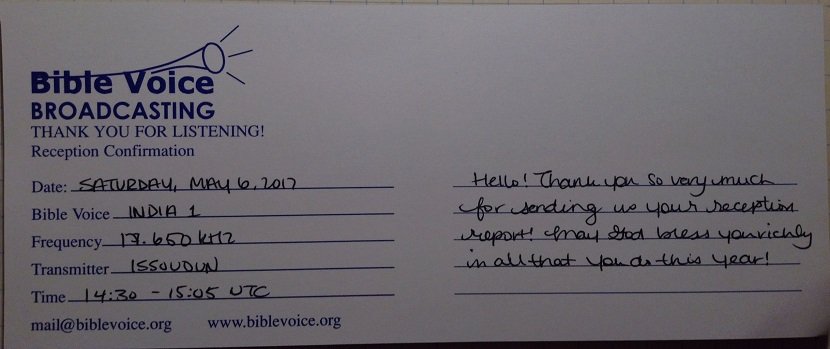 Bible Voice
BROADCASTING
THANK YOU FOR LISTENING!
Reception Confirmation
Date: SATURDAY, MAY 6, 2017
Bible Voice INDIA 1
Frequency 17.650 kHz
Transmitter ISSOUDUN
Time 14:30 - 15:05 UTC
mail@biblevoice.org www.biblevoice.org
Hello! Thank you so very much
for sending us your reception
report! May God bless you richly
in all that you do this year!